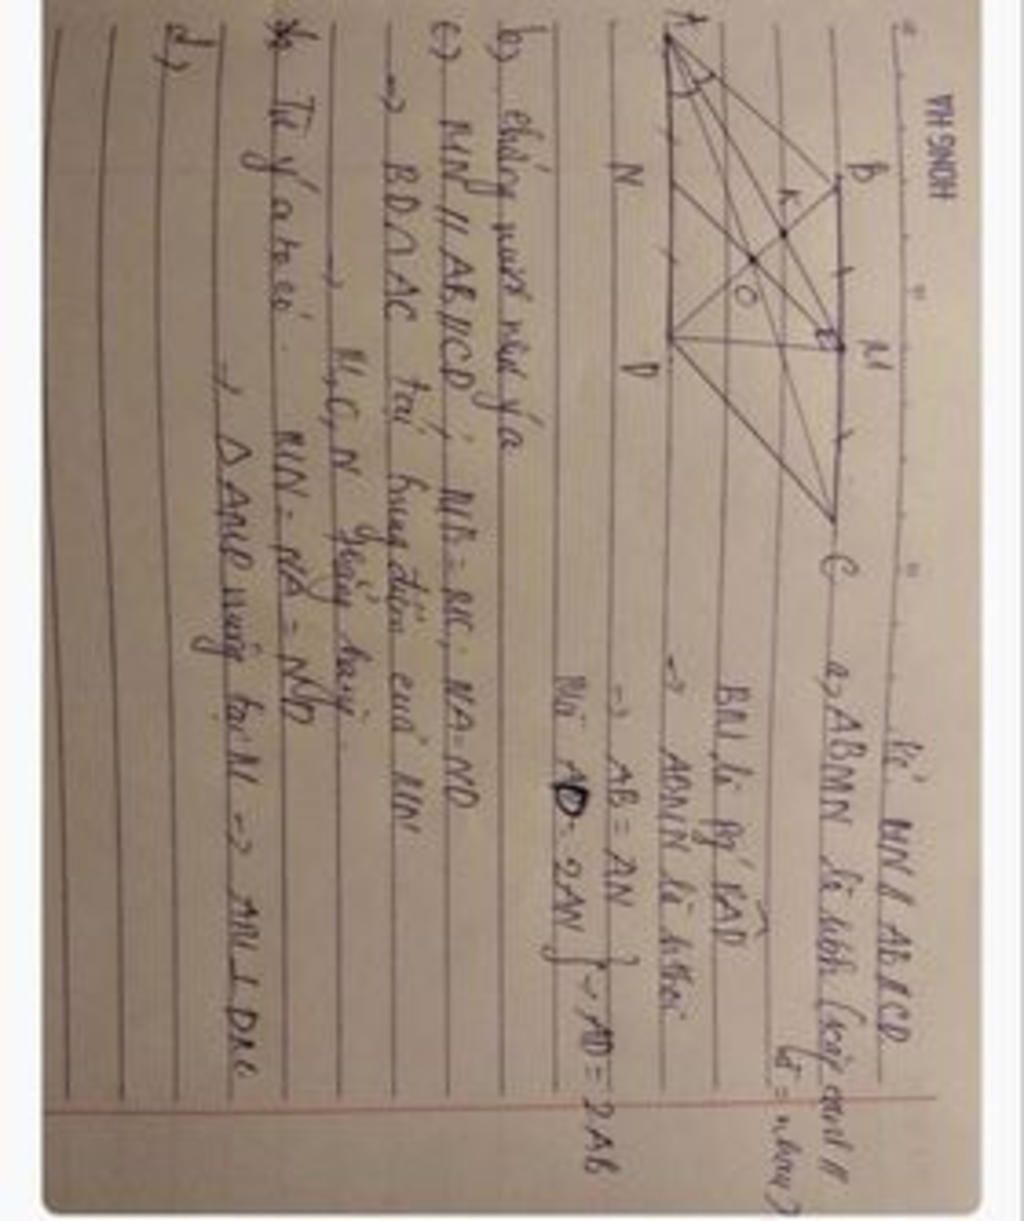 HONG HA
A
B
M
C
K
O
N
D
Kẻ MN // AB // CD
a, ABMN là hbh (cặp cạnh //
và = nhau)
BN là pg
→ ABMN là hthoi
→ AB = AN
Mà AD = 2AN } → AD = 2AB
b, chứng minh như ý a
c) MN // AB // CD ; MB = MC ; NA = ND
→ BD ∩ AC tại trung điểm của MN
→ M, O, N thẳng hàng.
Từ ý a ta có: MN = NA = ND
→ Δ AMD vuông tại M → AM ⊥ DM
d,